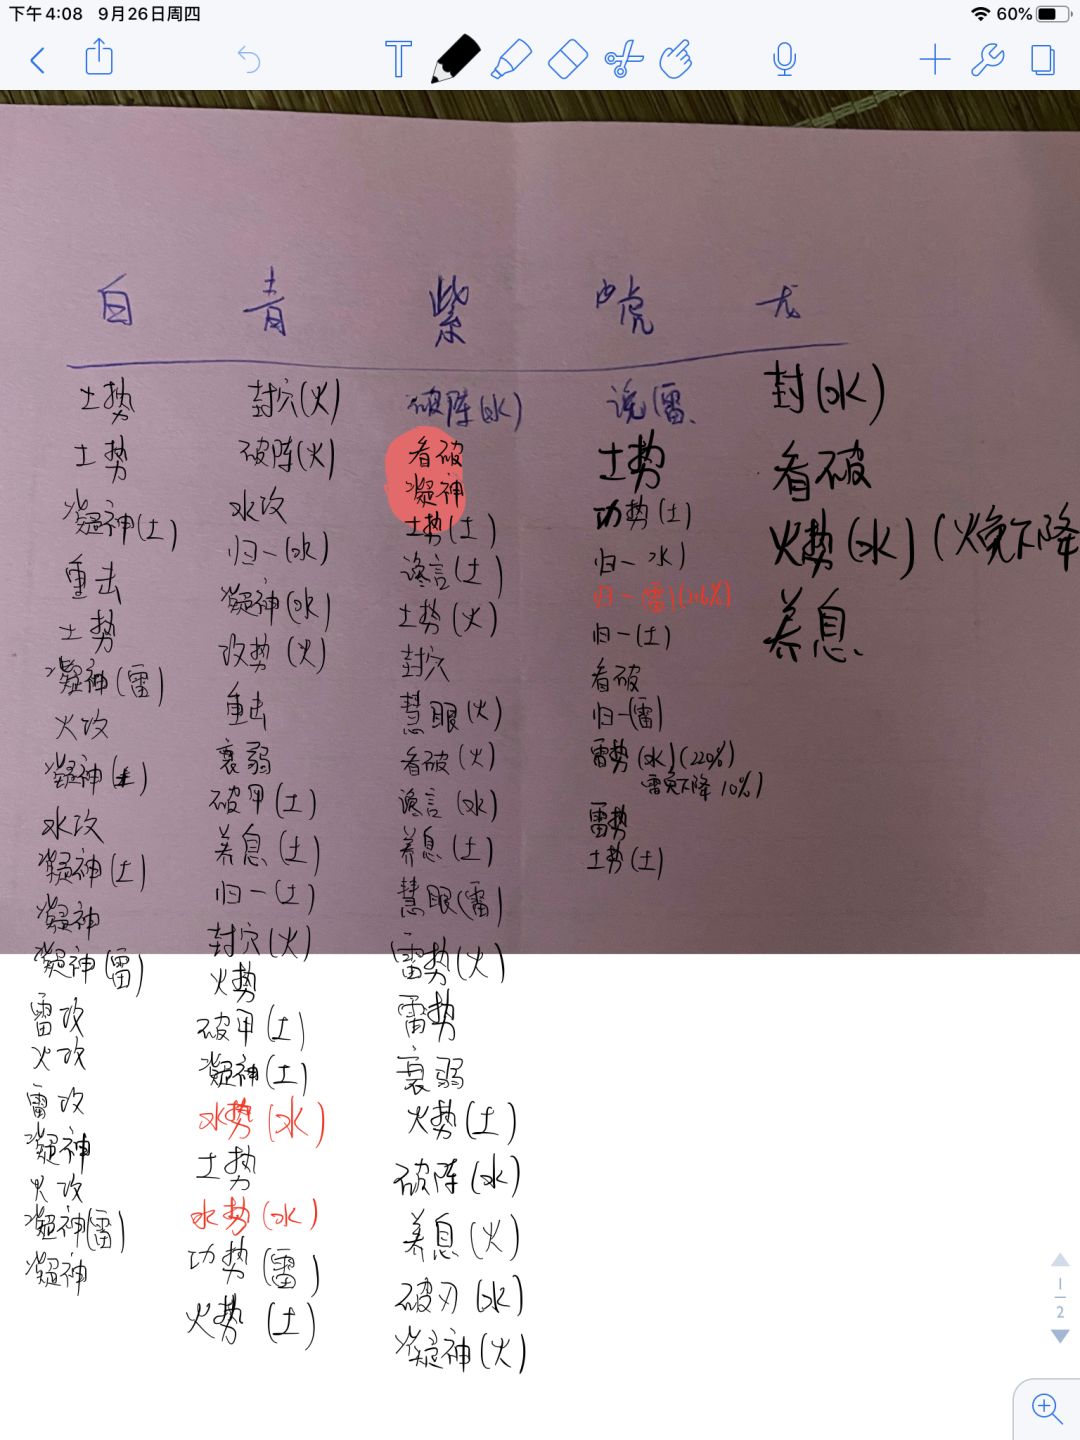 下午4:08 9月26日周四
60%
T
白 青 紫 虎 龙
土势
土势
凝神(土)
重击
土势
凝神(雷)
火攻
凝神(土)
水攻
凝神(土)
凝神
凝神(雷)
雷攻
火攻
雷攻
凝神
火攻
凝神(雷)
凝神
封穴(火)
破阵(火)
水攻
归一(水)
凝神(水)
攻势(火)
重击
衰弱
破甲(土)
养息(土)
归一(土)
封穴(火)
火势
破甲(土)
凝神(土)
水势(水)
土势
水势(水)
功势(雷)
火势(土)
破阵(水)
看破
凝神
土势(土)
谗言(土)
土势(火)
封穴
慧眼(火)
看破(火)
谗言(水)
养息(土)
慧眼(雷)
雷势(火)
雷势
衰弱
火势(土)
破阵(水)
养息(火)
破刃(水)
凝神(火)
土势
功势(土)
归一 水)
归一(雷)(206%)
归一(土)
看破
归一(雷)
雷势(水)(220%)
雷免下降10%)
雷势
土势(土)
封(水)
看破
火势(水)(火免下降
养息
1
2